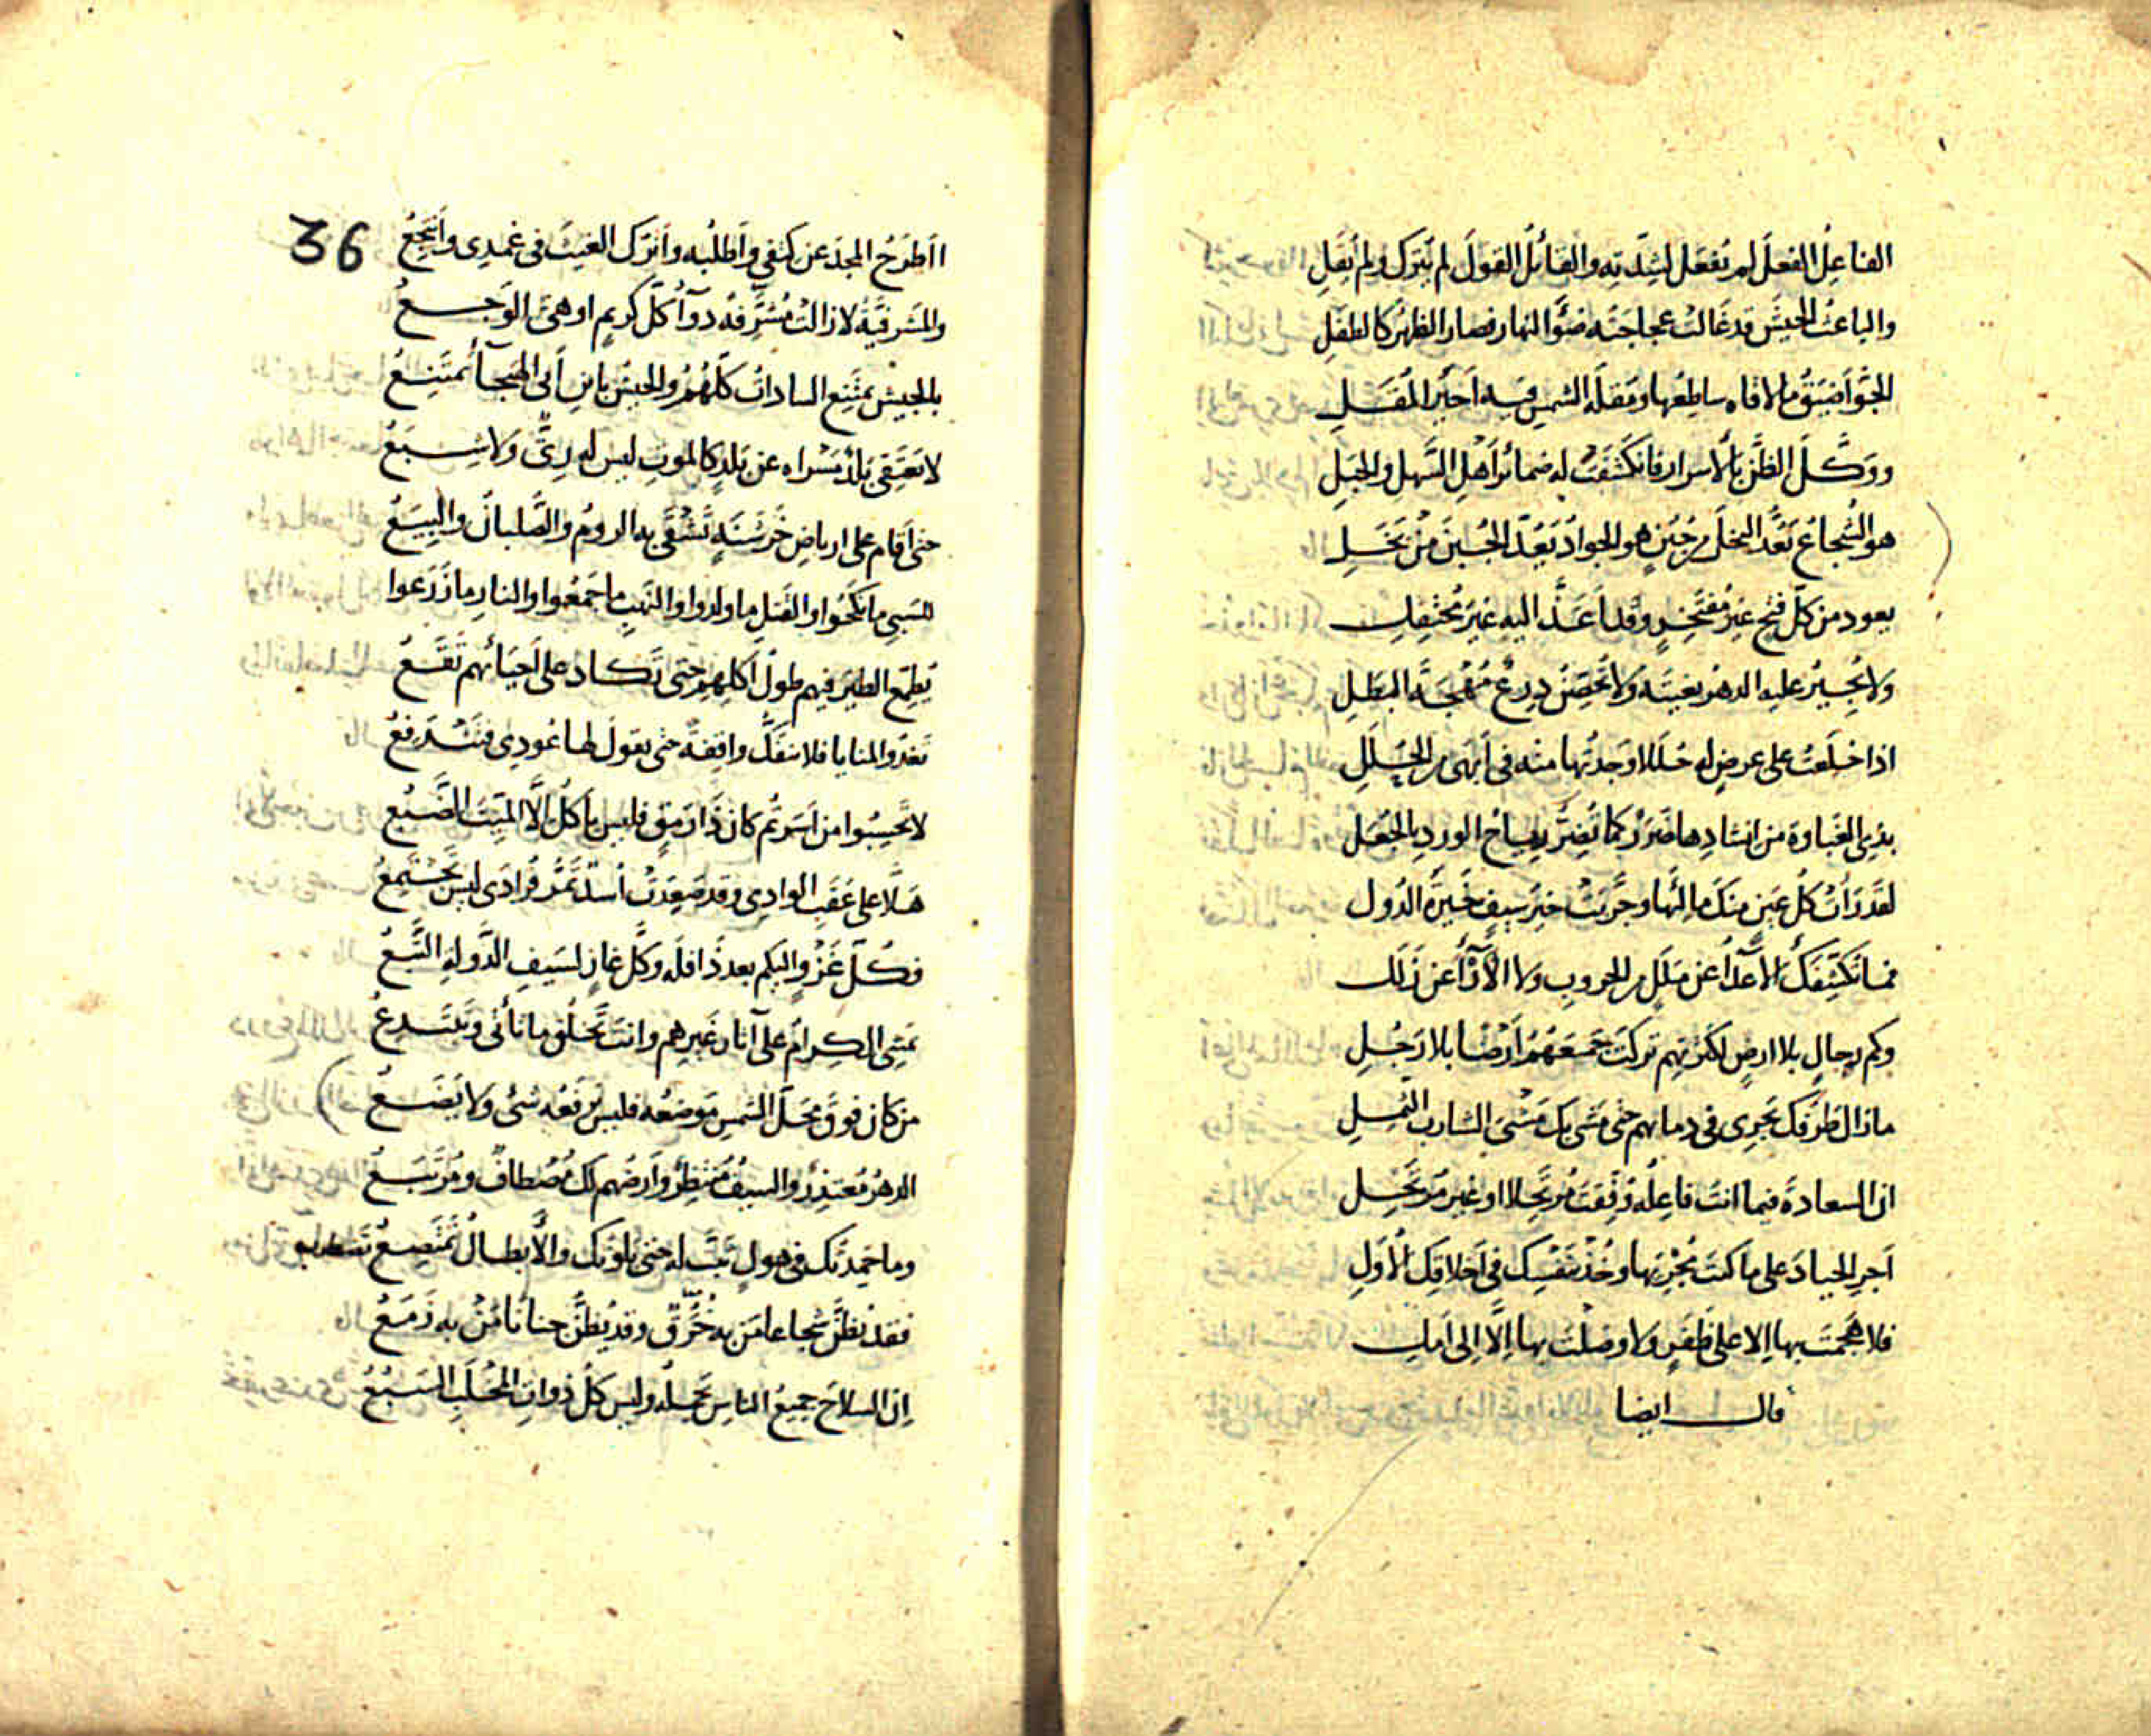 الفاعِلُ الفعلَ لم يُفعَل لشِدَّته والقائلُ القولَ لم يُترَك ولم يُقَلِ
والباعثُ الجيشَ قد غَالت عجاجَتُه ضوَّ النهار فصار الظهرُ كالطفَلِ
الجوُّ اَضيَقُ ما لاقاه ساطِعُها ومُقلَةُ الشمس فيه اَحيَرُ المُقَلِ
ووكَّلَ الظنَّ بالأسرار فانكشَفَتْ له ضمائرُ اَهلِ السَّهلِ والجبَلِ
هو الشُّجاعُ يَعُدُّ البخلَ من جُبُنٍ هو الجوادُ يَعُدُّ الجُبنَ مِنْ بَخَلِ
يعود من كلّ فتحٍ غيرَ مُفتخِرٍ وقد اَغَذَّ اليهِ غيرَ مُحتفِلِ
ولا يُجيرُ عليه الدهرُ بغيَتَه ولا تُحصِّنُ دِرعٌ مُهجَةَ البطَلِ
اذا خلَعتُ على عرضٍ له حُلَلا وجدتُها منه في اَبهَى من الحُلَلِ
بذي الغَباوة من انشادِها ضَرَرٌ كما تُضِرُّ رياحُ الوردِ بالجُعَلِ
لقد رأت كلُّ عينٍ منكَ مالِئَها وجرَّبَتْ خيرَ سيفٍ خَيرَةُ الدُول
فما تَكشِّفكَ الأعداءُ عن مَلَلٍ من الحروبِ ولا الآراءُ عن زَلَلِ
وكم رجالٍ بلا ارضٍ لكثرتِهم تركتَ جمعَهُمُ اَرضًا بلا رَجُلِ
مازال طِرفُكَ يَجرِي في دمائهم حتى مشَى بك مَشْيَ الشاربِ الثمِلِ
ان السعادةَ فيما انتَ فاعِلُه وُفِّقتَ مُرتحِلا او غيرَ مُرتحِلِ
اَجرِ الجيادَ على ما كنتَ مُجرِيَها وخُذْ بنَفسِك في اَخلاقِكَ الأُوَلِ
فلا هجمتَ بها اِلا على ظَفَرٍ ولا وصلتَ بها اِلّا اِلى اَملِ
قال ايضا
36
ااَطرَحُ المجدَ عن كتفي واَطلُبه واَترُك الغيثَ في غمدي واَنتجِعُ
والمَشرَفيَّةُ لازالت مُشرَّفةً دوآءُ كلّ كريمٍ اوهي الوَجَعُ
بالجيش تمتنِع السادات كلّهُمُ والجيشُ بابنِ اَبي الهَيجآء يَمتنِعُ
لا يَعتَقي بَلَدٌ مَسْراه عن بَلدٍ كالموتِ ليس له رِيٌّ ولا شِبَعُ
حتى اَقام على ارباضِ خَرشَنَةٍ تَشقَى به الرومُ والصُّلبانُ والبِيَعُ
للسَبيِ ما نَكَحُوا والقتلِ ما ولدوا والنَهبِ ما جمعُوا والنارِ ما زَرَعوا
يُطمِّع الطيرَ فيهم طولُ اَكلِهم حتى تَكاد على اَحيائهم تَقَعُ
تَغدُو المنايا فلا تنفَكُّ واقِفةً حتى يقولَ لها عُودِي فتَنْدَفِعُ
لا تَحسِبُوا من اَسَرتُم كان ذا رَمَقٍ فليس يأكُلُ اِلَّا المَيِّتَ الضَّبُعُ
هلّا على عَقَبِ الوادي وقد صَعِدَتْ اُسْدٌ تَمُرُّ فُرادَى ليس تَجْتَمِعُ
فكُلُّ غَزْوٍ اِليكم بعد ذا فلَه وكُلُّ غازٍ لسَيفِ الدَّولة التَّبَعُ
تمشي الكرامُ على آثار غَيرِهم وانتَ تَخلُق ما تأتي وتَبتَدِعُ
من كان فوقَ مَحلِّ الشمسِ مَوضِعُه فليس يَرفَعُه شئ ولا يَضَعُ
الدهرُ مُعتذِرٌ والسيفُ مُنتظِرٌ واَرضُهم لك مُصْطافٌ ومُرتَبَعُ
وما حَمِدتُك في هولٍ ثَبَتَّ له حتى بلَوتُك والأبطالُ تَمتَصِعُ
فقد يُظَنُّ شجاعا مَن به خُرُقٌ وقد يُظَنُّ جبانا مَنْ به زَمَعُ
اِن السلاحَ جميعُ الناس تَحمِلُه وليس كلّ ذواتِ المِخلَبِ السَبُعُ